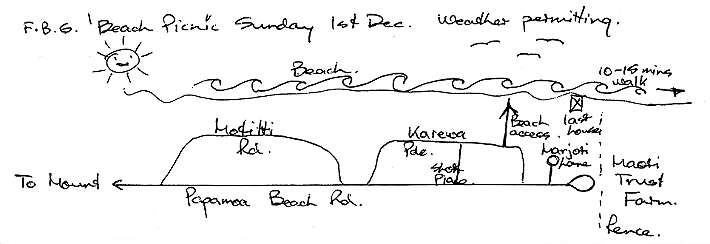 F.B.G. 'Beach Picnic' Sunday 1st Dec. Weather permitting.
Beach.
10-15 mins
walk
Beach
access.
last
house
Motiti
Rd.
Karewa
Pde.
Place
Marjoti
Lane
Maoti
Trust
Farm.
fence.
To Mount
Papamoa Beach Rd.